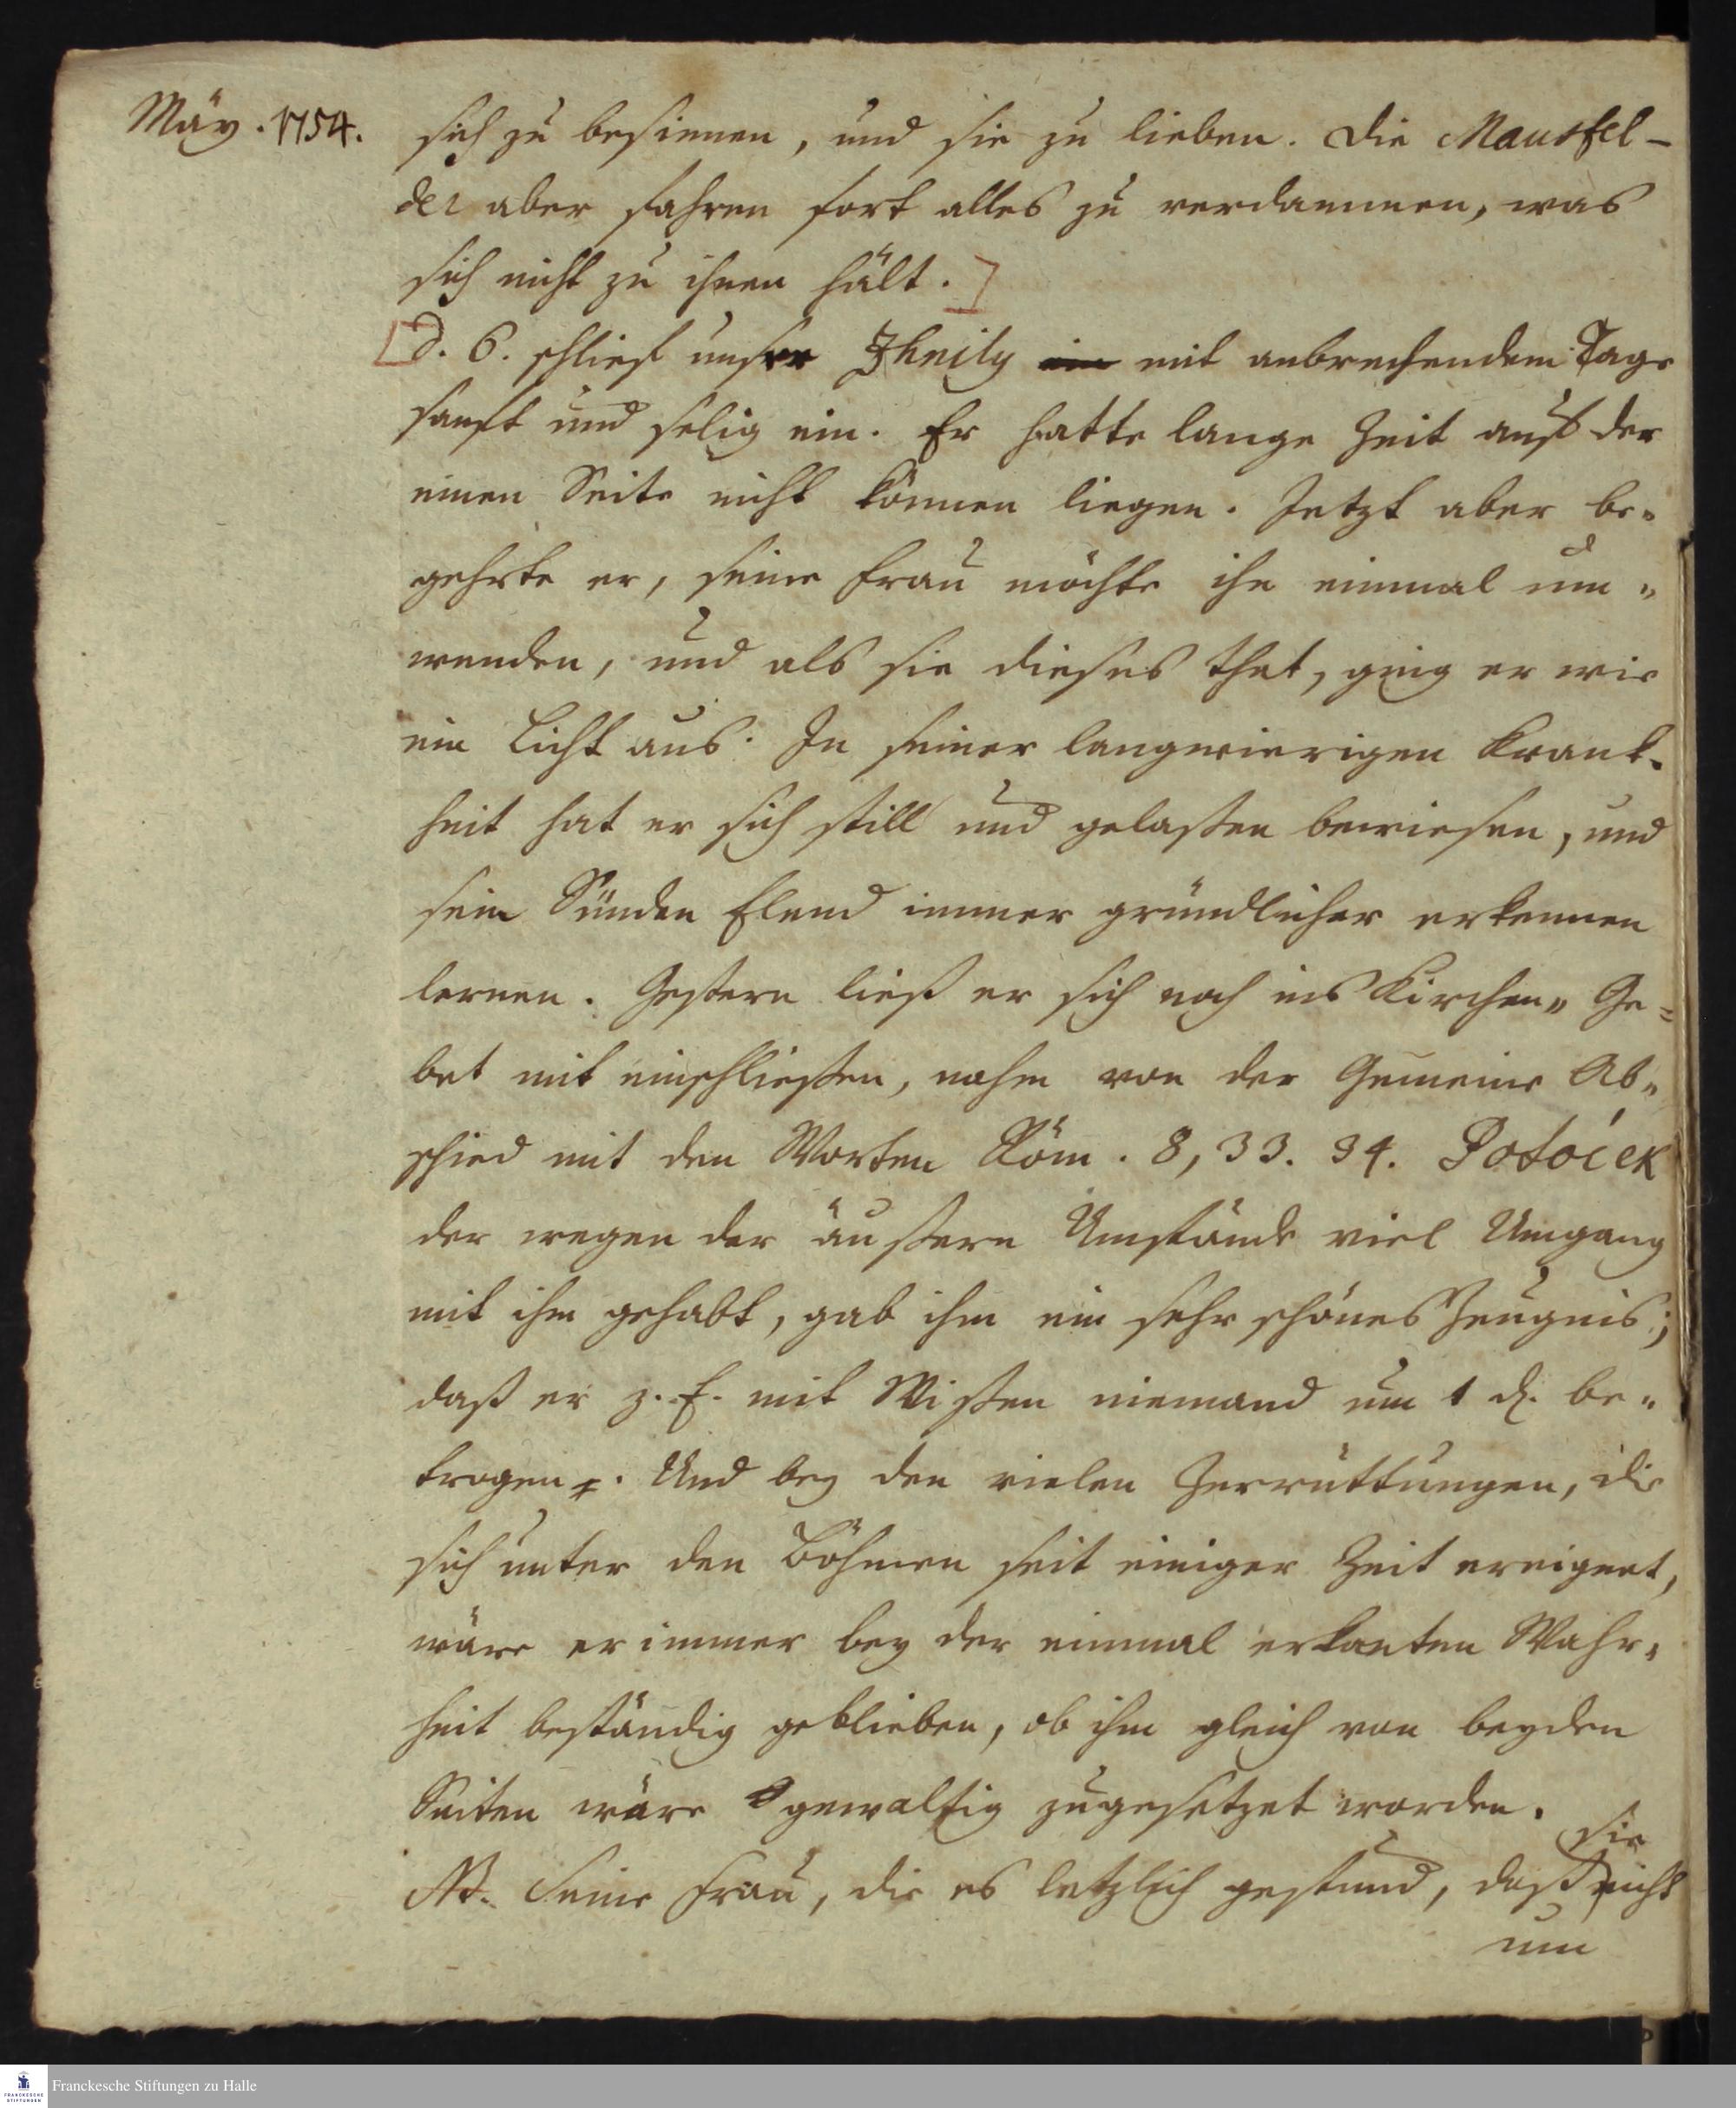 May. 1754.
sich zu besinnen, und sie zu lieben. Die Mansfel-
der aber fahren fort alles zu verdammen, was
sich nicht zu ihnen hält.]
[d. 6. schlief unser Zhnily mit anbrechendem Tage
sanft und selig ein. Er hatte lange Zeit auf der
einen Seite nicht können liegen. Jetzt aber be-
gehrte er, seine Frau möchte ihn einmal um-
wenden, und als sie dieses that, ging er wie
ein Licht aus. In seiner langwierigen Krank-
heit hat er sich still und gelaßen bewiesen, und
sein Sünden Elend immer gründlicher erkennen
lernen. Gestern ließ er sich noch ins Kirchen- Ge-
bet mit einschließen, nahm von der Gemeine Ab-
schied mit den Worten Röm. 8, 33. 34. Potocek
der wegen der äußern Umstände viel Umgang
mit ihm gehabt, gab ihm ein sehr schönes Zeugnis;
daß er z. E. mit Wißen niemand um 1 d. be-
trogen. Und bey den vielen Zerrüttungen, die
sich unter den Böhmen seit einiger Zeit ereignet,
wäre er immer bey der einmal erkanten Wahr-
heit beständig geblieben, ob ihm gleich von beyden
Seiten wäre gewaltig zugesetzet worden.
NB. Seine Frau, die es letzlich gestund, daß sie nicht
um
Franckesche Stiftungen zu Halle
FRANCKESCHE
STIFTUNGEN